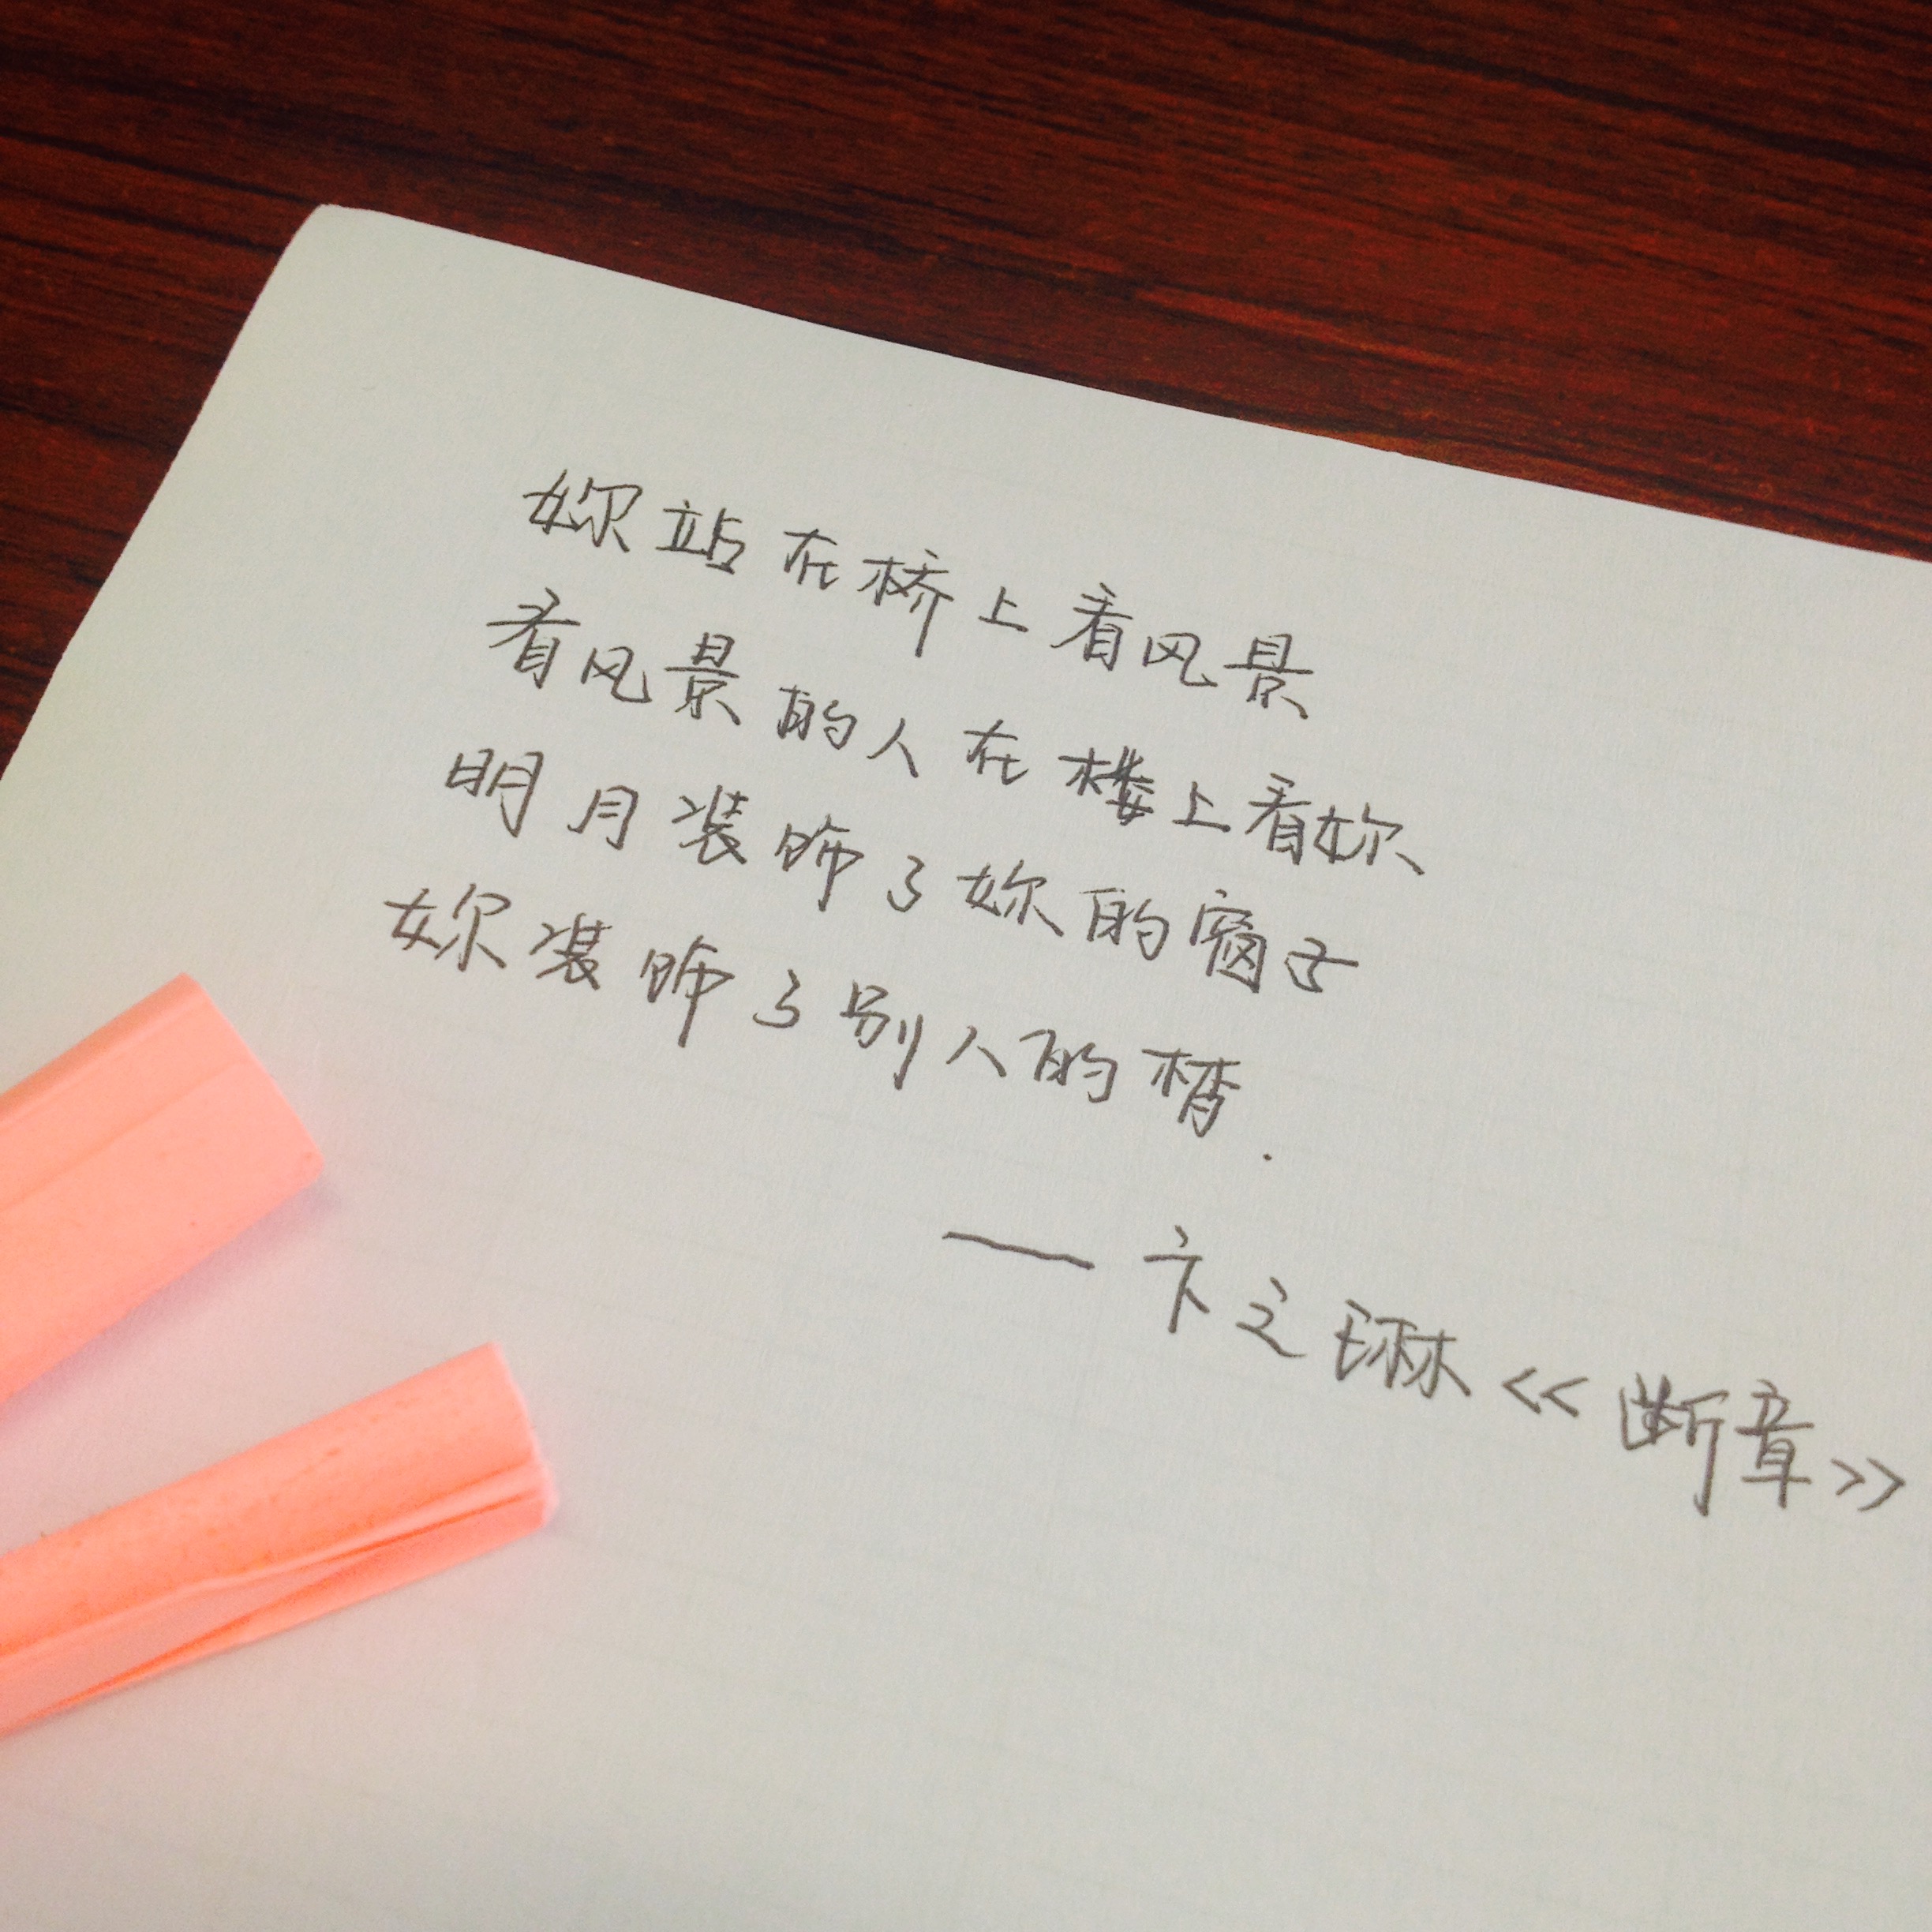 妳站在桥上看风景
看风景的人在楼上看妳
明月装饰了妳的窗子
妳装饰了别人的梦.
—卞之琳《断章》